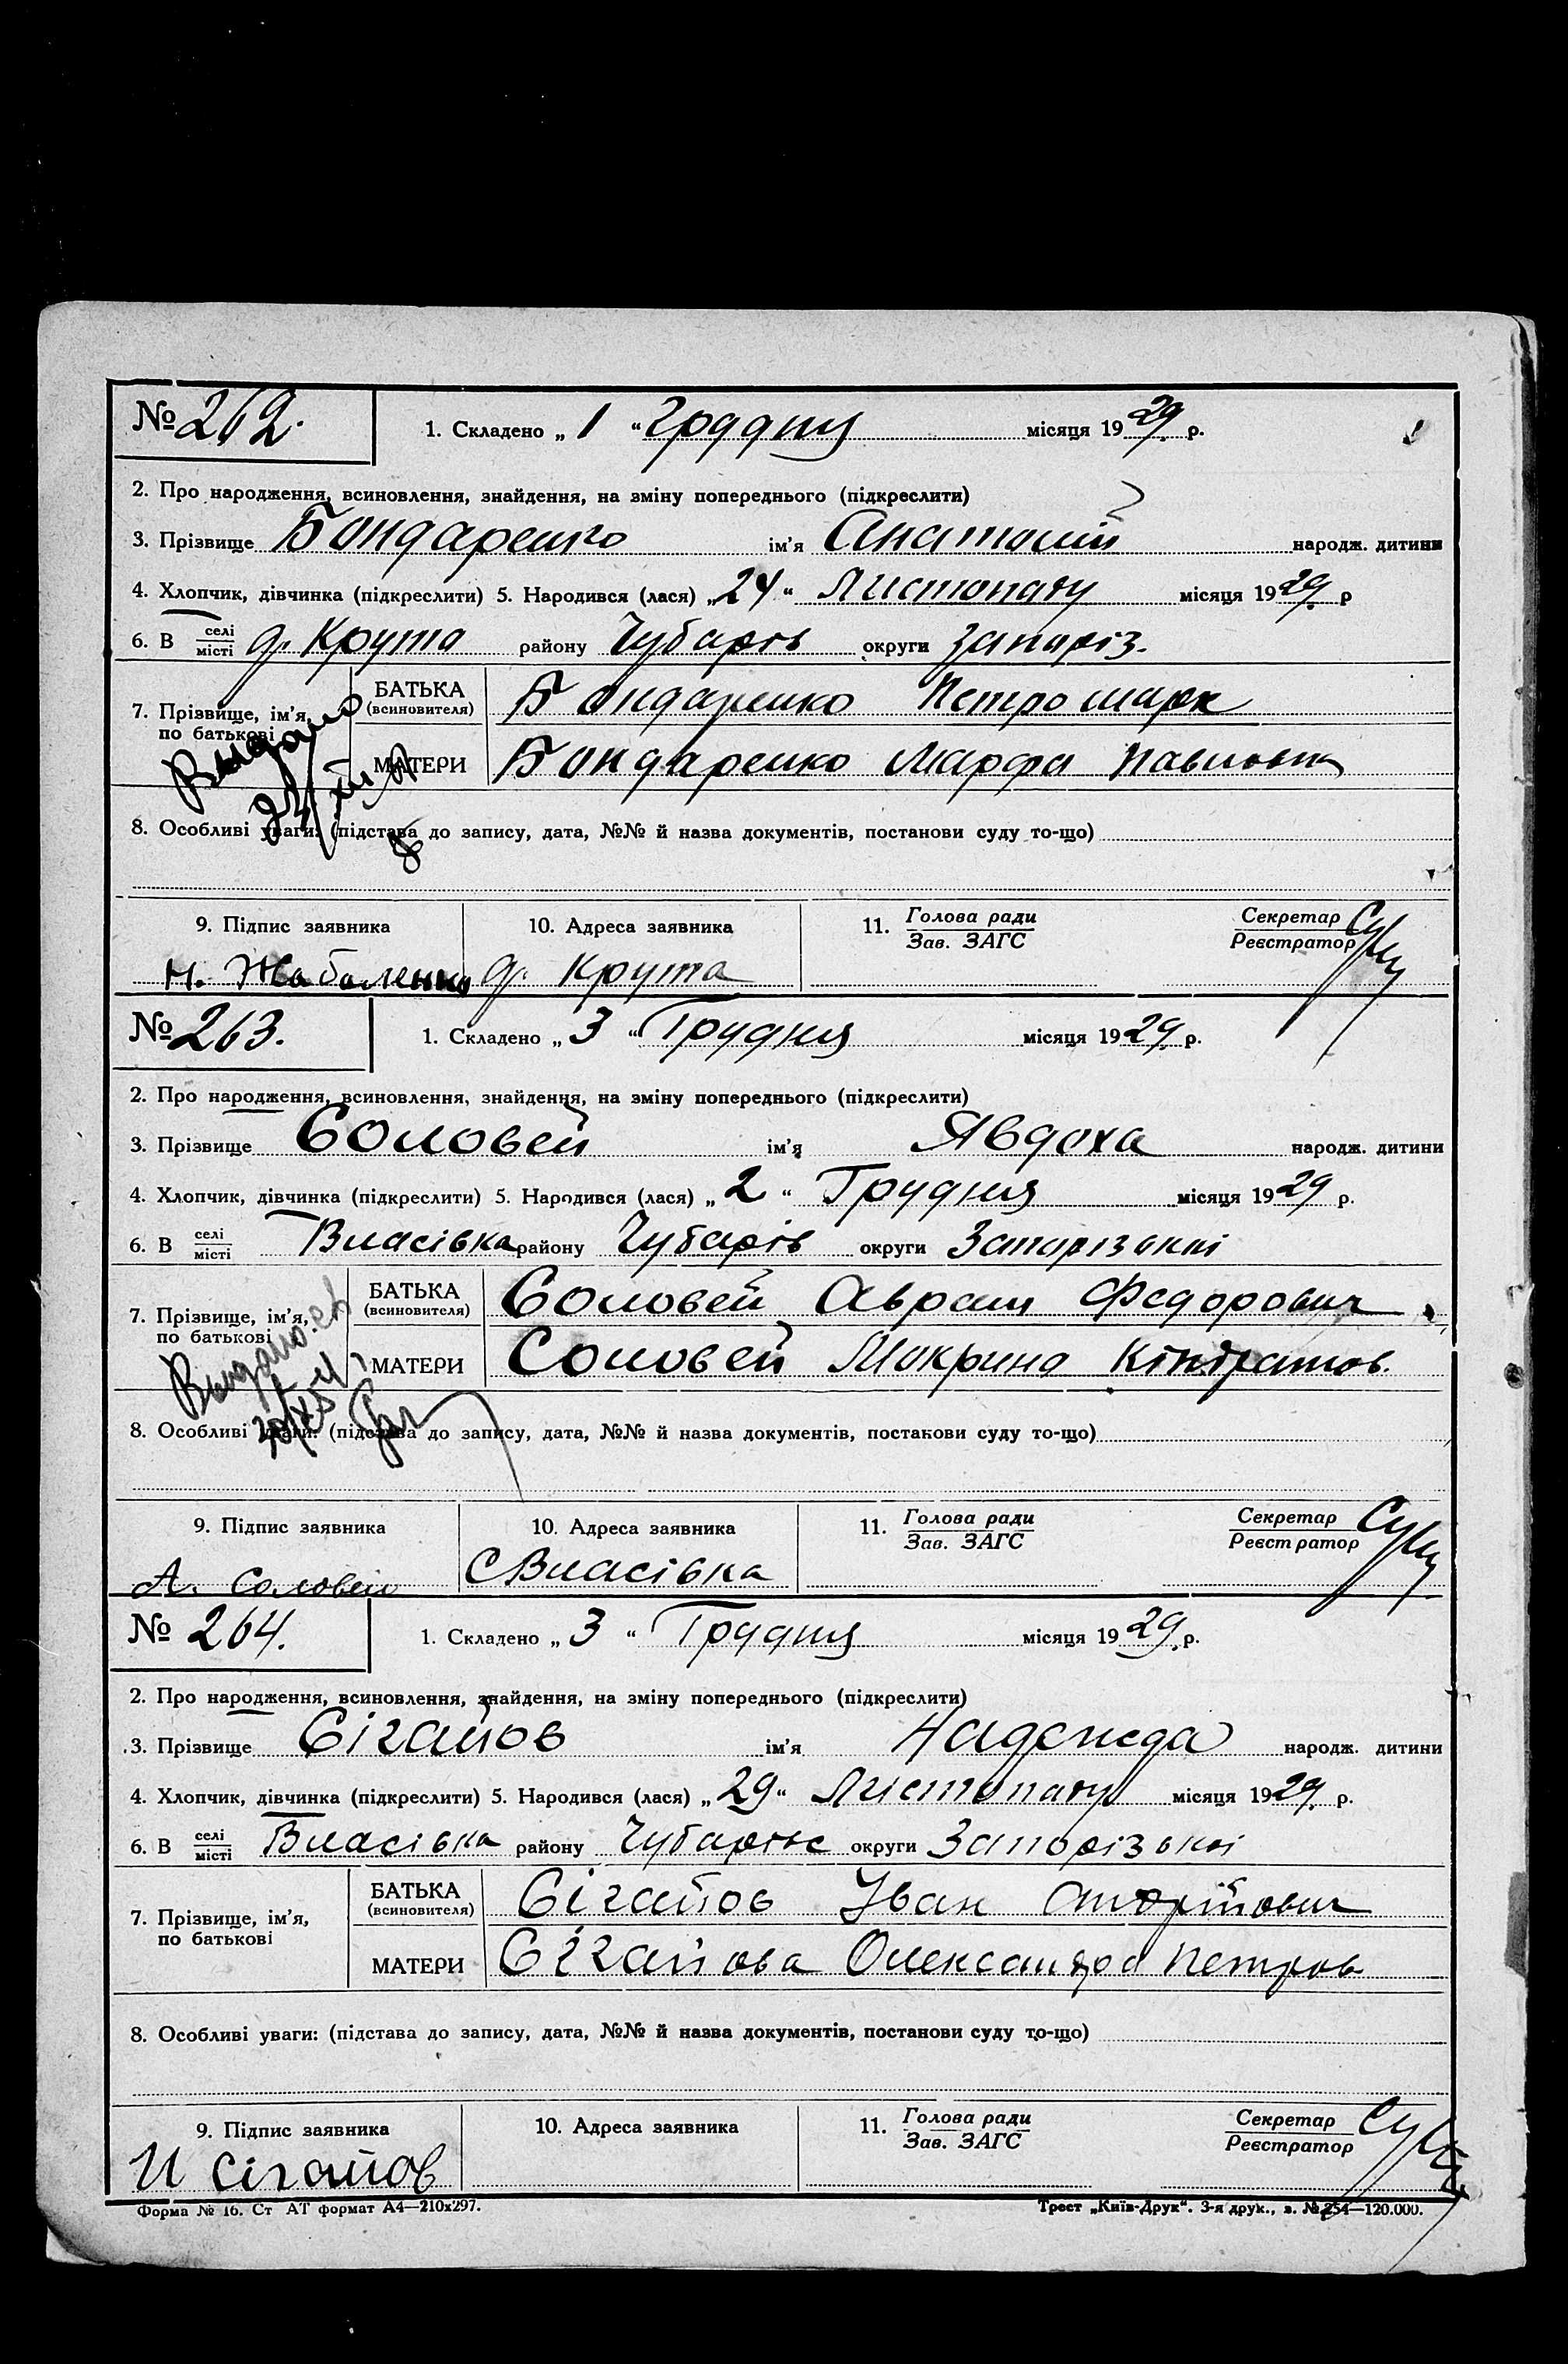 № 262. 1. Складено „ 1 “ Грудня місяця 1929 р.
2. Про народження, всиновлення, знайдення, на зміну попереднього (підкреслити)
3. Прізвище Бондаренко ім'я Анатолій народж. дитини
4. Хлопчик, дівчинка (підкреслити) 5. Народився (лася) „ 24 “ Листопаду місяця 1929 р
6. В селі місті д. Крута району Чубарів округи Запоріз.
7. Прізвище, ім'я, по батькові БАТЬКА (всиновителя) Бондаренко Петро Марк
МАТЕРИ Бондаренко Марфа Павловна
Выдано
8. Особливі уваги: (підстава до запису, дата, №№ й назва документів, постанови суду то-що)
9. Підпис заявника 10. Адреса заявника 11. Голова ради Зав. ЗАГС Секретар Реєстратор
д. Крута
№ 263. 1. Складено „ 3 “ Грудня місяця 1929 р.
2. Про народження, всиновлення, знайдення, на зміну попереднього (підкреслити)
3. Прізвище Соловей ім'я Явдоха народж. дитини
4. Хлопчик, дівчинка (підкреслити) 5. Народився (лася) „ 2 “ Грудня місяця 1929 р.
6. В селі місті Власівка району Чубарів округи Запорізькі
7. Прізвище, ім'я, по батькові БАТЬКА (всиновителя) Соловей Аврам Федорович
МАТЕРИ Соловей Мокрина Кіндратов.
8. Особливі уваги: (підстава до запису, дата, №№ й назва документів, постанови суду то-що)
9. Підпис заявника 10. Адреса заявника 11. Голова ради Зав. ЗАГС Секретар Реєстратор
А. Соловей С Власівка
№ 264. 1. Складено „ 3 “ Грудня місяця 1929 р.
2. Про народження, всиновлення, знайдення, на зміну попереднього (підкреслити)
3. Прізвище Сігайов ім'я Надежда народж. дитини
4. Хлопчик, дівчинка (підкреслити) 5. Народився (лася) „ 29 “ Листопаду місяця 1929 р.
6. В селі місті Власівка району округи Запорізькі
7. Прізвище, ім'я, по батькові БАТЬКА (всиновителя) Сігайов Іван
МАТЕРИ Сігайова Олександра Петров
8. Особливі уваги: (підстава до запису, дата, №№ й назва документів, постанови суду то-що)
9. Підпис заявника 10. Адреса заявника 11. Голова ради Зав. ЗАГС Секретар Реєстратор
И Сігайов
Форма № 16. Ст АТ формат А4—210х297. Трест „Київ-Друк“. 3-я друк., з. № 254—120.000.